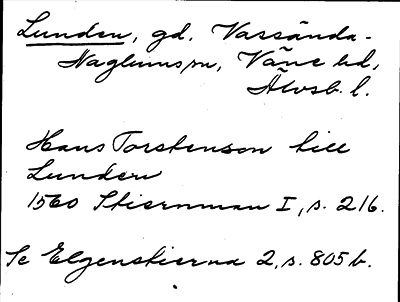 Lunden, gd. Vassända-
Naglums sn, Väne hd,
Älvsb. l.
Hans Torstenson till
Lunden
1560 Stiernman I, s. 216.
Se Elgenstierna 2, s. 805 b.